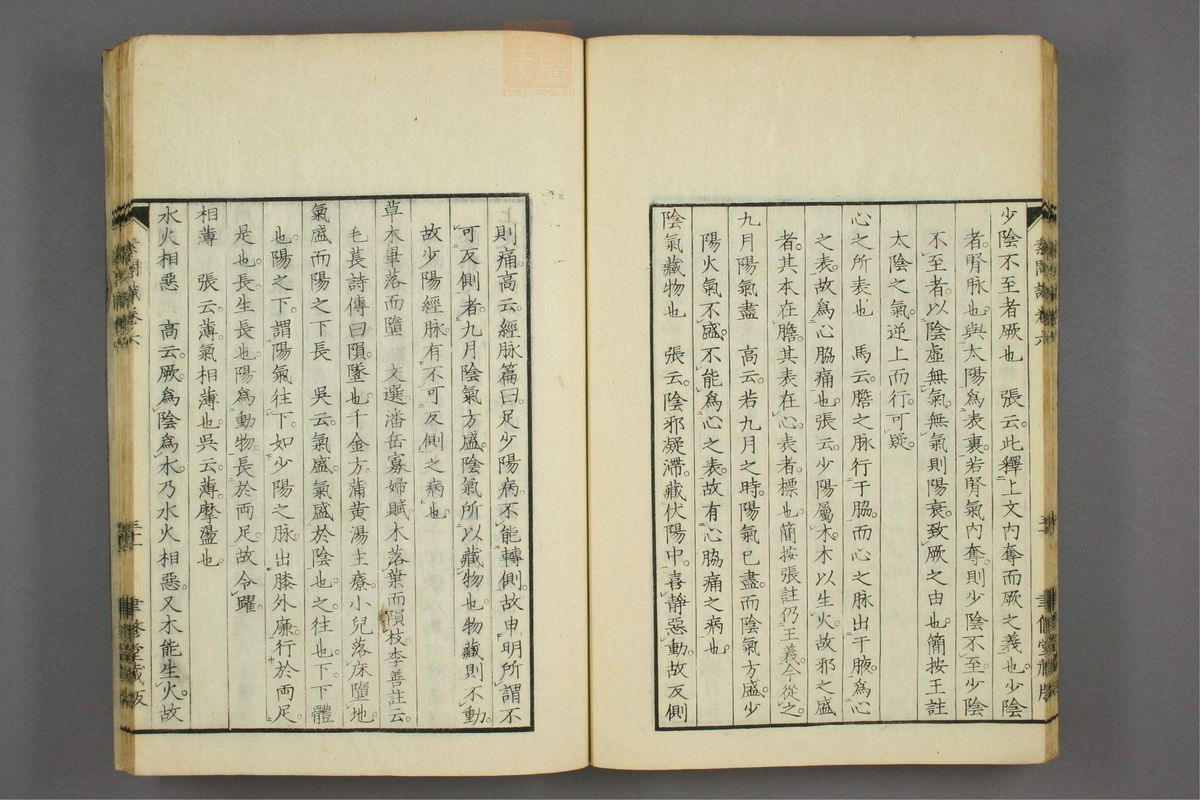 少陰不至者厥也　張云此釋上文內奪而厥之義也少陰
者腎脉也與太陽爲表裏若腎氣內奪則少陰不至少陰
不至者以陰虛無氣無氣則陽衰致厥之由也簡按王註
太陰之氣逆上而行可疑
心之所表也　馬云膽之脉行于脇而心之脉出于腋爲心
之表故爲心脇痛也張云少陽屬木木以生火故邪之盛
者其本在膽其表在心表者標也簡按張註仍王義今從之
九月陽氣盡　高云若九月之時陽氣已盡而陰氣方盛少
陽火氣不盛不能爲心之表故有心脇痛之病也
陰氣藏物也　張云陰邪凝滯藏伏陽中喜靜惡動故反側
則痛高云經脉篇曰足少陽病不能轉側故申明所謂不
可反側者九月陰氣方盛陰氣所以藏物也物藏則不動
故少陽經脉有不可反側之病也
草木畢落而墮　文選潘岳寡婦賦木落葉而隕枝李善註云
毛萇詩傳曰隕墜也千金方蒲黄湯主療小兒落床墮地
氣盛而陽之下長　吳云氣盛氣盛於陰也之往也下下體
也陽之下謂陽氣往下如少陽之脉出膝外廉行於両足
是也長生長也陽爲動物長於両足故令躍
相薄　張云薄氣相薄也吳云薄摩盪也
水火相惡　高云厥爲陰爲水乃水火相惡又木能生火故